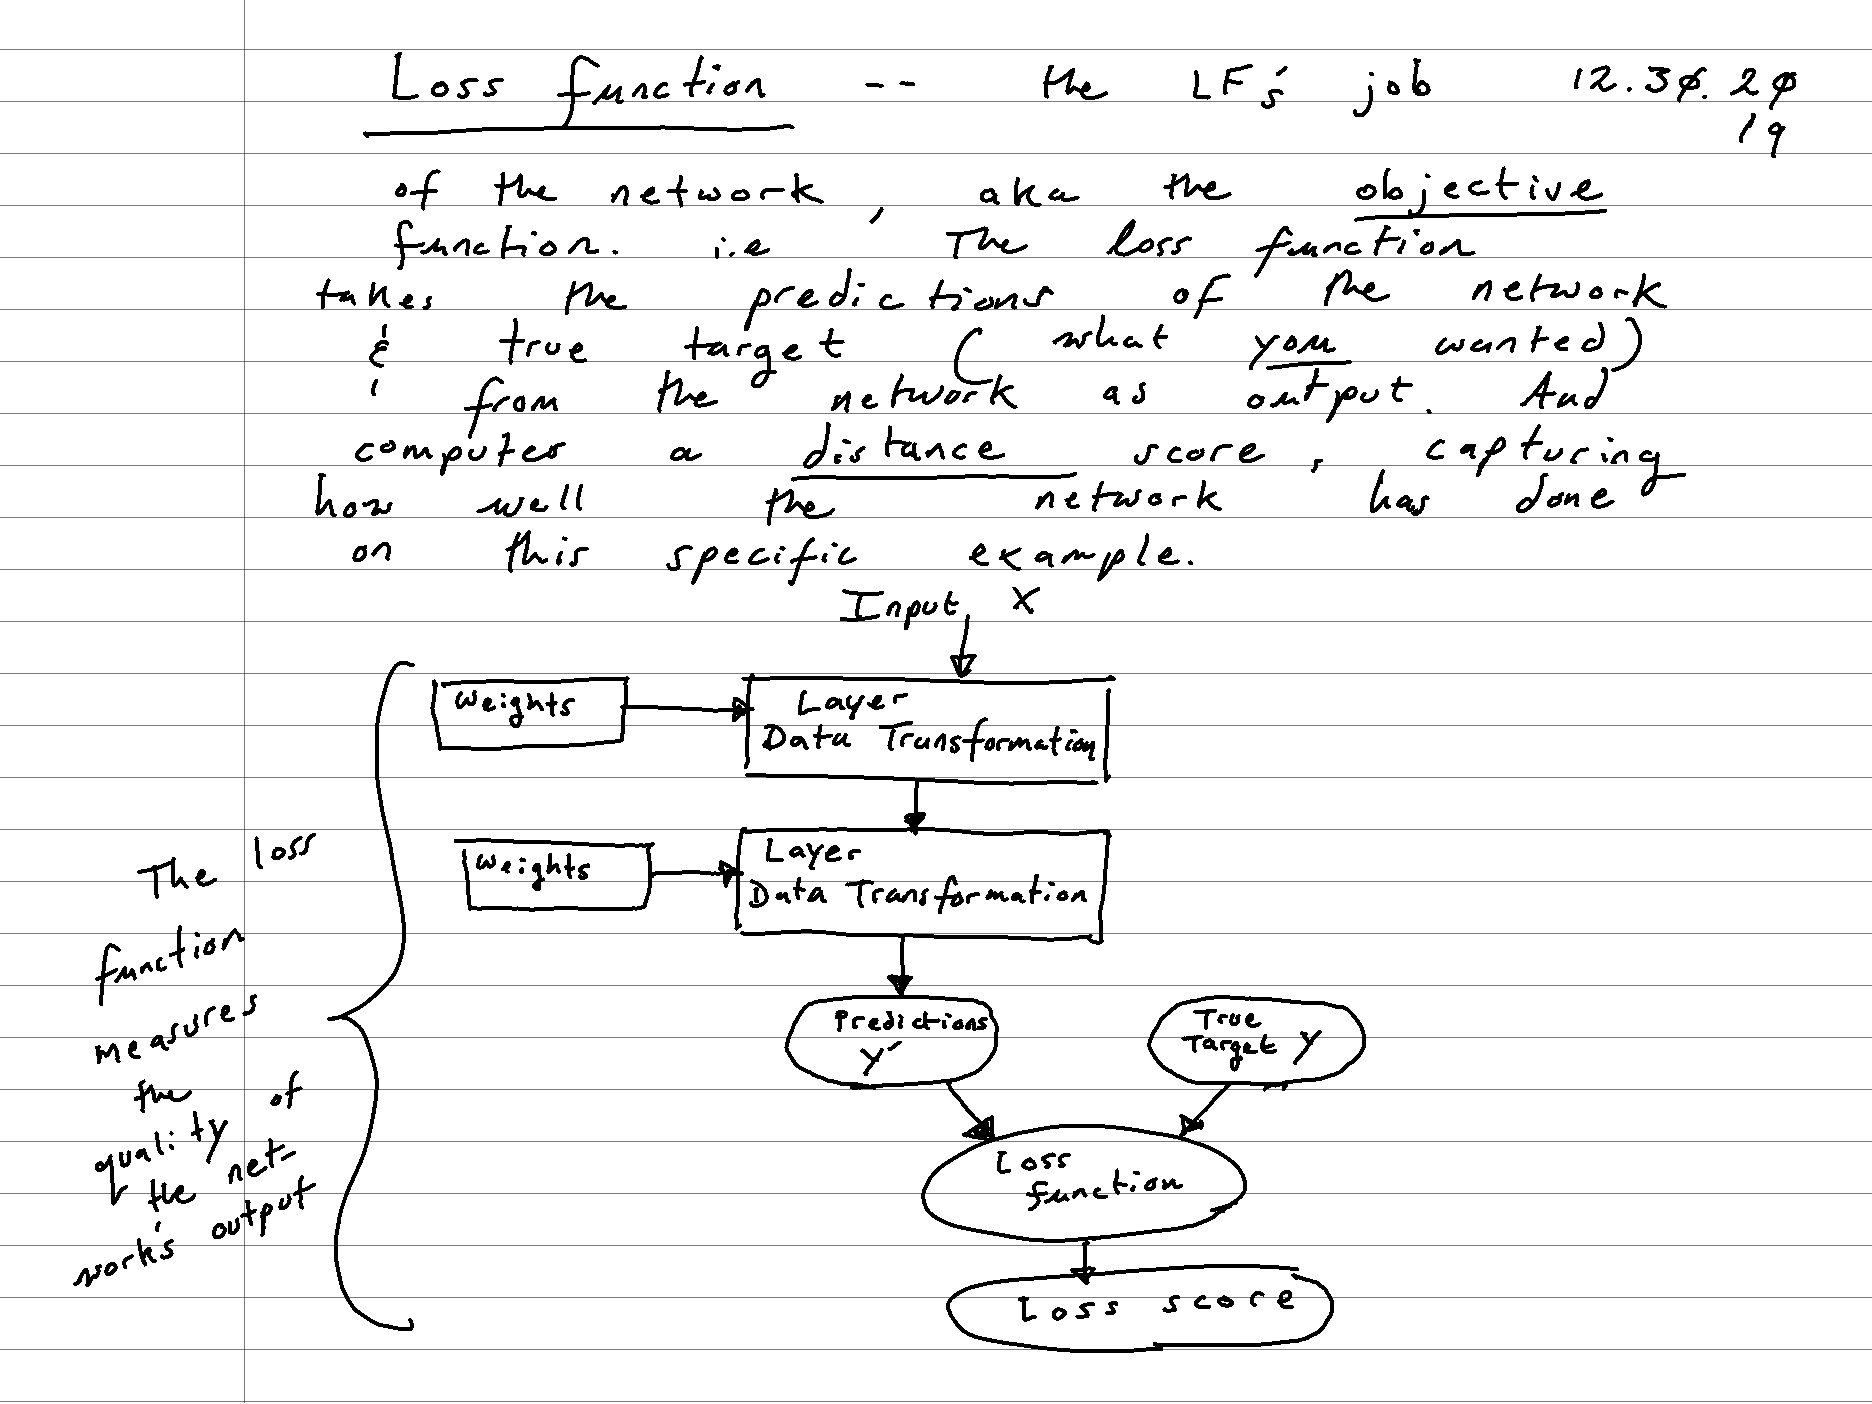 Loss function -- the LF's job 12.30.20
19
of the network, aka the objective
function. i.e The loss function
takes the predictions of the network
& true target (what you wanted)
from the network as output. And
computes a distance score, capturing
how well the network has done
on this specific example.
Input X
Weights
Layer
Data Transformation
Weights
Layer
Data Transformation
The loss
function
measures
the
quality of
the net-
work's output
Predictions
Y'
True
Target Y
Loss
function
Loss score